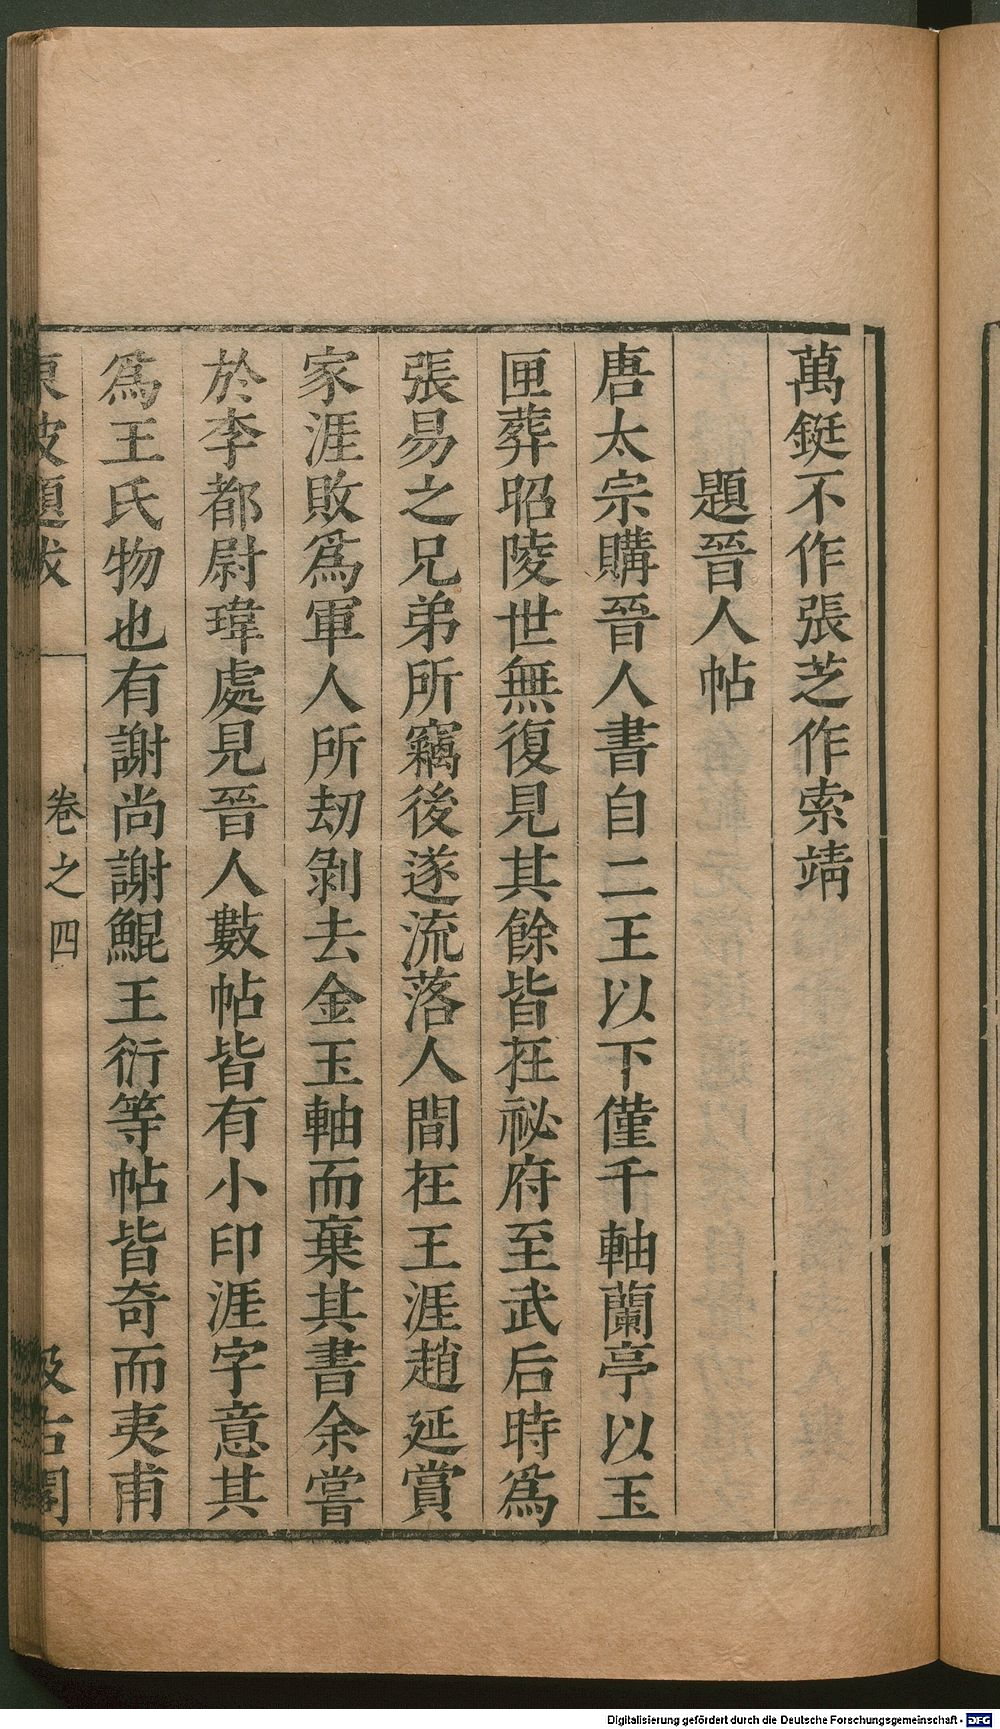 萬鋌不作張芝作索靖
題晉人帖
唐太宗購晉人書自二王以下僅千軸蘭亭以玉
匣葬昭陵世無復見其餘皆在祕府至武后時爲
張易之兄弟所竊後遂流落人間在王涯趙延賞
家涯敗爲軍人所刼剝去金玉軸而棄其書余嘗
於李都尉瑋處見晉人數帖皆有小印涯字意其
爲王氏物也有謝尚謝鯤王衍等帖皆奇而夷甫
東坡題跋 卷之四 汲古閣
Digitalisierung gefördert durch die Deutsche Forschungsgemeinschaft - DFG